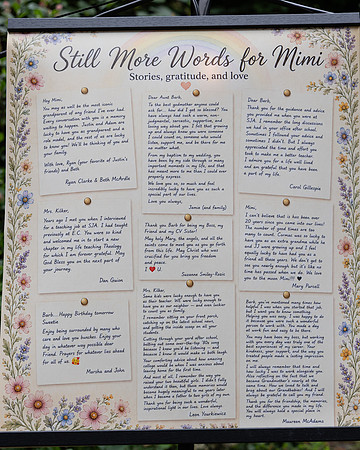 Still More Words for Mimi
Stories, gratitude, and love
Hey Mimi,
You may as well be the most iconic
grandparent of any friend I've ever had.
Every conversation with you is a memory
waiting to happen. Justin and Adam are
lucky to have you as grandparent and a
role model, and the rest of us are lucky
to know you! We'll be thinking of you and
your family.
With love, Ryan (your favorite of Justin's
friends) and Beth
Ryan Clarke & Beth McArdle
Dear Aunt Barb,
To the best godmother anyone could
ask for... how did I get so blessed? You
have always had such a warm, non-
judgmental, supportive, and
loving way about you. I felt that growing
up and always knew you were someone
I could count on, someone who would
listen, support me, and be there for me
no matter what.
From my baptism to my wedding, you
have been by my side through so many
important moments in my life, and that
has meant more to me than I could ever
properly express.
We love you so, so much and feel
incredibly lucky to have you as such a
special part of our lives.
Love you always,
Jamie (and family)
Dear Barb,
Thank you for the guidance and advice
you provided me when you were at
SJA. I remember the long discussions
we had in your office after school.
Sometimes I followed your advice and
sometimes I didn't. But I always
appreciated the time and effort you
took to make me a better teacher.
I admire you for a life well lived
and am grateful that you are a special
part of mine.
Carol Gillespie
Mrs. Kilker,
Years ago I met you when I interviewed
for a teaching job at SJA. I had taught
previously at B.C. You were so kind
and welcomed me in to start a new
chapter in my life teaching Theology
for which I am forever grateful. May
God Bless you on the next part of
your journey.
Dan Gavon
Thank you Barb for being my Bots, my
Friend and my CY Sister!
May holy Mary, the angels, and all the
saints come to meet you as you go forth
from this life. May Christ who was
crucified for you bring you freedom
and peace.
I ❤️ U.
Susanne Smiley-Resis
Mimi,
I can't believe that is has been over
20 years since you came into our lives!
The number of good times are too
many to count. Carmac was so lucky to
have you as an extra grandma while he
and JJ were growing up and I feel
equally lucky to have had you as a
friend all these years. We don't get to
see you nearly enough but it's like no
time has passed when we do. We love
you to the moon Mimi!!!
Mary Purcell
Barb... Happy Birthday tomorrow
Sweetie
Enjoy being surrounded by many who
care and love you harder. Enjoy your
day in whatever way possible dear
Friend. Prayers for whatever lies ahead
for all of us. 🥰
Martha and John
Mrs. Kilker,
Some kids were lucky enough to have you
as their teacher. Will were lucky enough to
have you as our neighbor — and even luckier
to count you as family.
I remember sitting on your front porch,
soaking up the latest school news,
and getting the inside scoop on all your
students.
Cutting through your yard after school,
yelling out some over-the-top 'Hi! Guy
because I knew it would make us both laugh!
Your comforting advice about how amazing
college would be when I was anxious about
leaving home for the first time.
And most of all, I remember the way you
raised your two beautiful girls. I didn't fully
understand it then, but those memories would
become hugely meaningful to me years later
when I became a father to two girls of my own.
Thank you for being such a wonderful,
inspirational light in our lives. Love always
Leon Yourkiewicz
Barb, you've mentioned many times how
helpful I was when you started that job,
but I want you to know something —
Helping you was easy. I was happy to do
it because you were such a wonderful
person to work with. You made a day
of work fun and easy to be there.
You may have been my boss, but working
with you every day was truly one of the
best experiences of my career. Your
kindness, your support, and the way you
treated people made a lasting impression
on me.
I will always remember that time and
how lucky I was to work alongside you.
Also delighted on the fact that you
became Grandmother's nearly at the
same time. How we loved to talk and
brag about our Grandbabies! And I will
always be grateful to call you my friend.
Thank you for the friendship, the memories,
and the difference you made in my life.
You will always hold a special place in
my heart.
Maureen McAdams